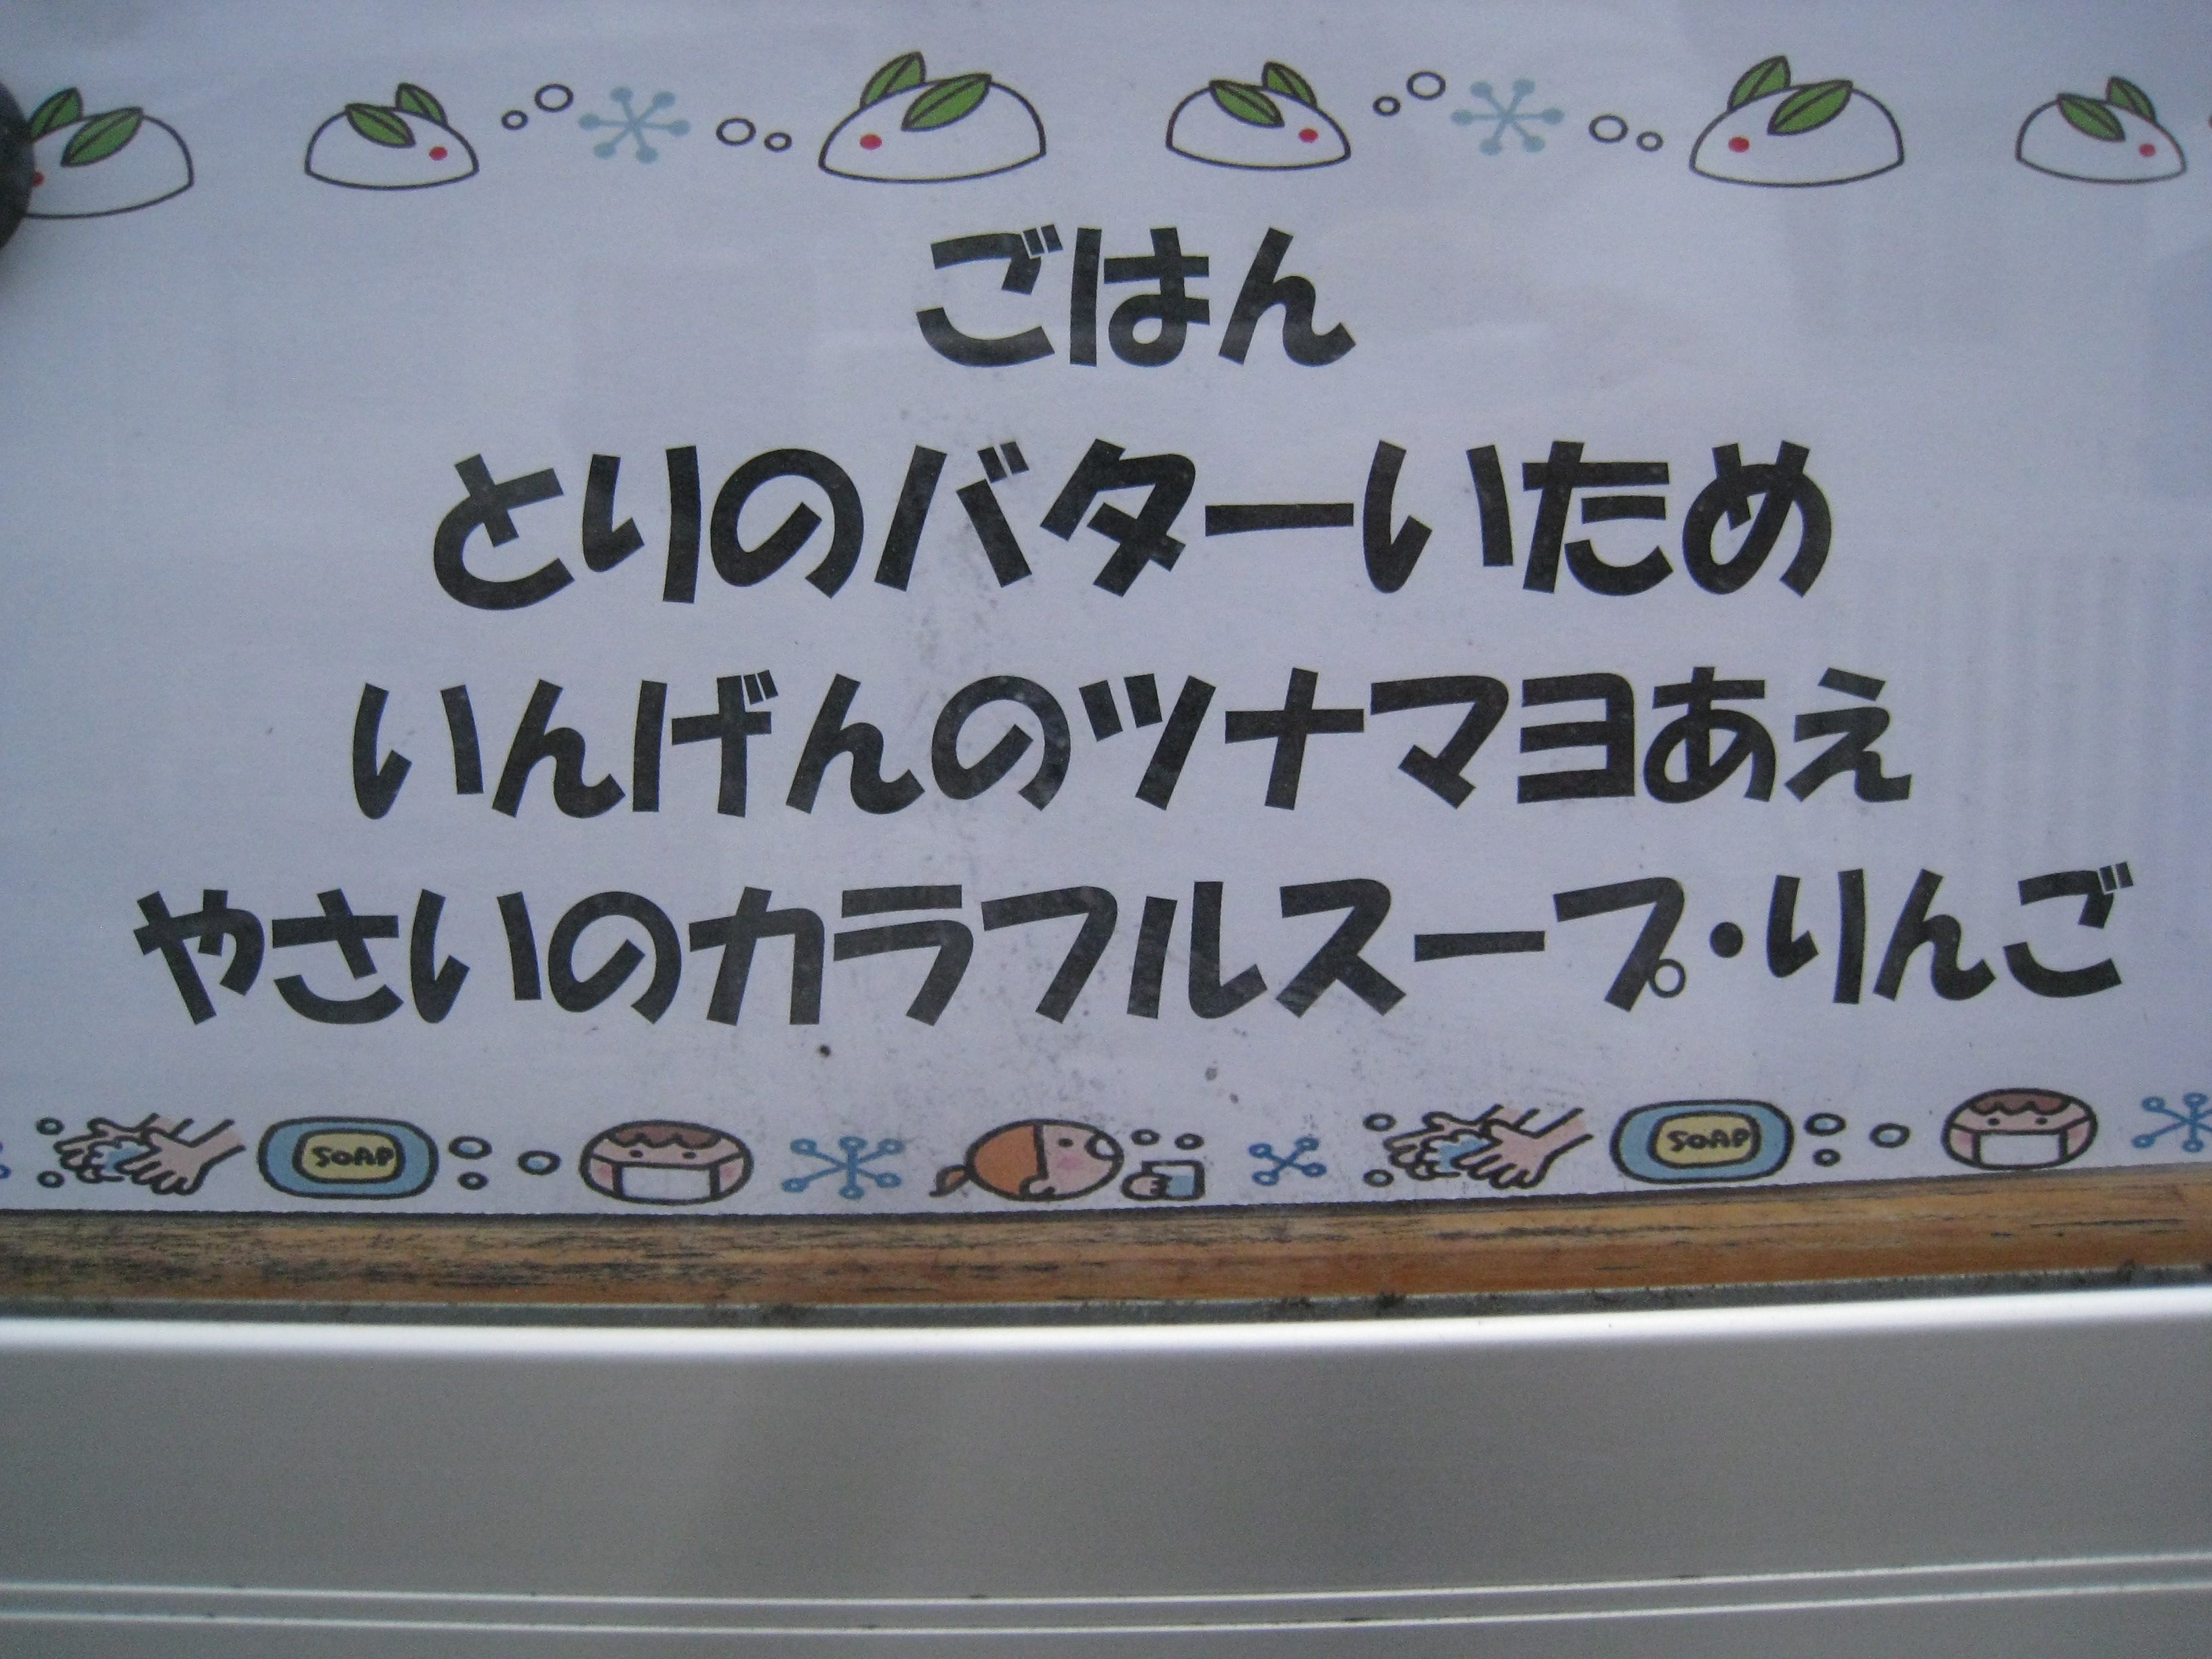 ごはん
とりのバターいため
いんげんのツナマヨあえ
やさいのカラフルスープ・りんご
SOAP
SOAP